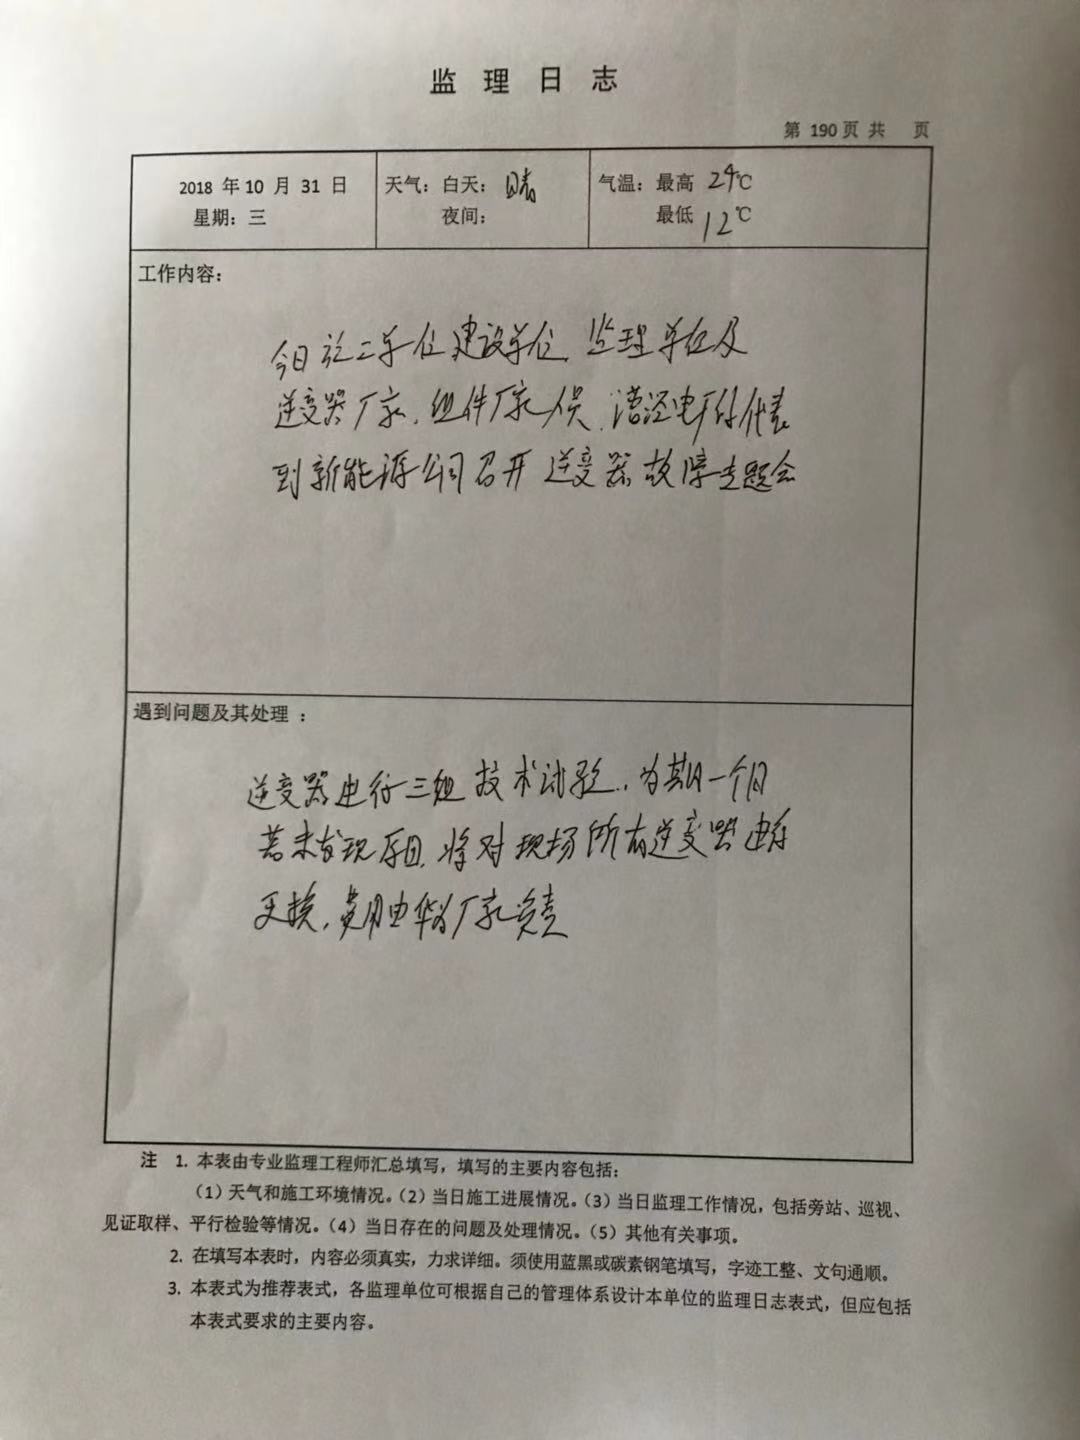 监理日志
第 190 页 共 页
2018 年 10 月 31 日
星期：三
天气：白天：晴
夜间：
气温：最高 24℃
最低 12℃
工作内容：
今日施工单位 建设单位、监理单位及
逆变器厂家、组件厂家人员、漕泾电厂代表
到新能源公司召开逆变器故障专题会
遇到问题及其处理：
逆变器进行三组技术试验，为期一个月
若未发现原因，将对现场所有逆变器进行
更换，费用由华为厂家负责
注 1. 本表由专业监理工程师汇总填写，填写的主要内容包括：
（1）天气和施工环境情况。（2）当日施工进展情况。（3）当日监理工作情况，包括旁站、巡视、
见证取样、平行检验等情况。（4）当日存在的问题及处理情况。（5）其他有关事项。
2. 在填写本表时，内容必须真实，力求详细。须使用蓝黑或碳素钢笔填写，字迹工整、文句通顺。
3. 本表式为推荐表式，各监理单位可根据自己的管理体系设计本单位的监理日志表式，但应包括
本表式要求的主要内容。